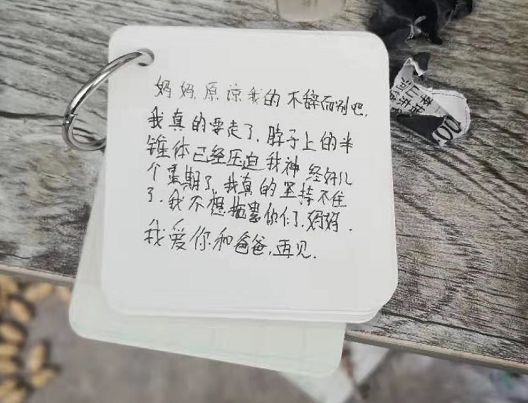 妈妈,原谅我的不辞而别吧,
我真的要走了,脖子上的半
锥体已经压迫我神经好几
个星期了,我真的坚持不住
了,我不想拖累你们,妈妈,
我爱你和爸爸,再见.